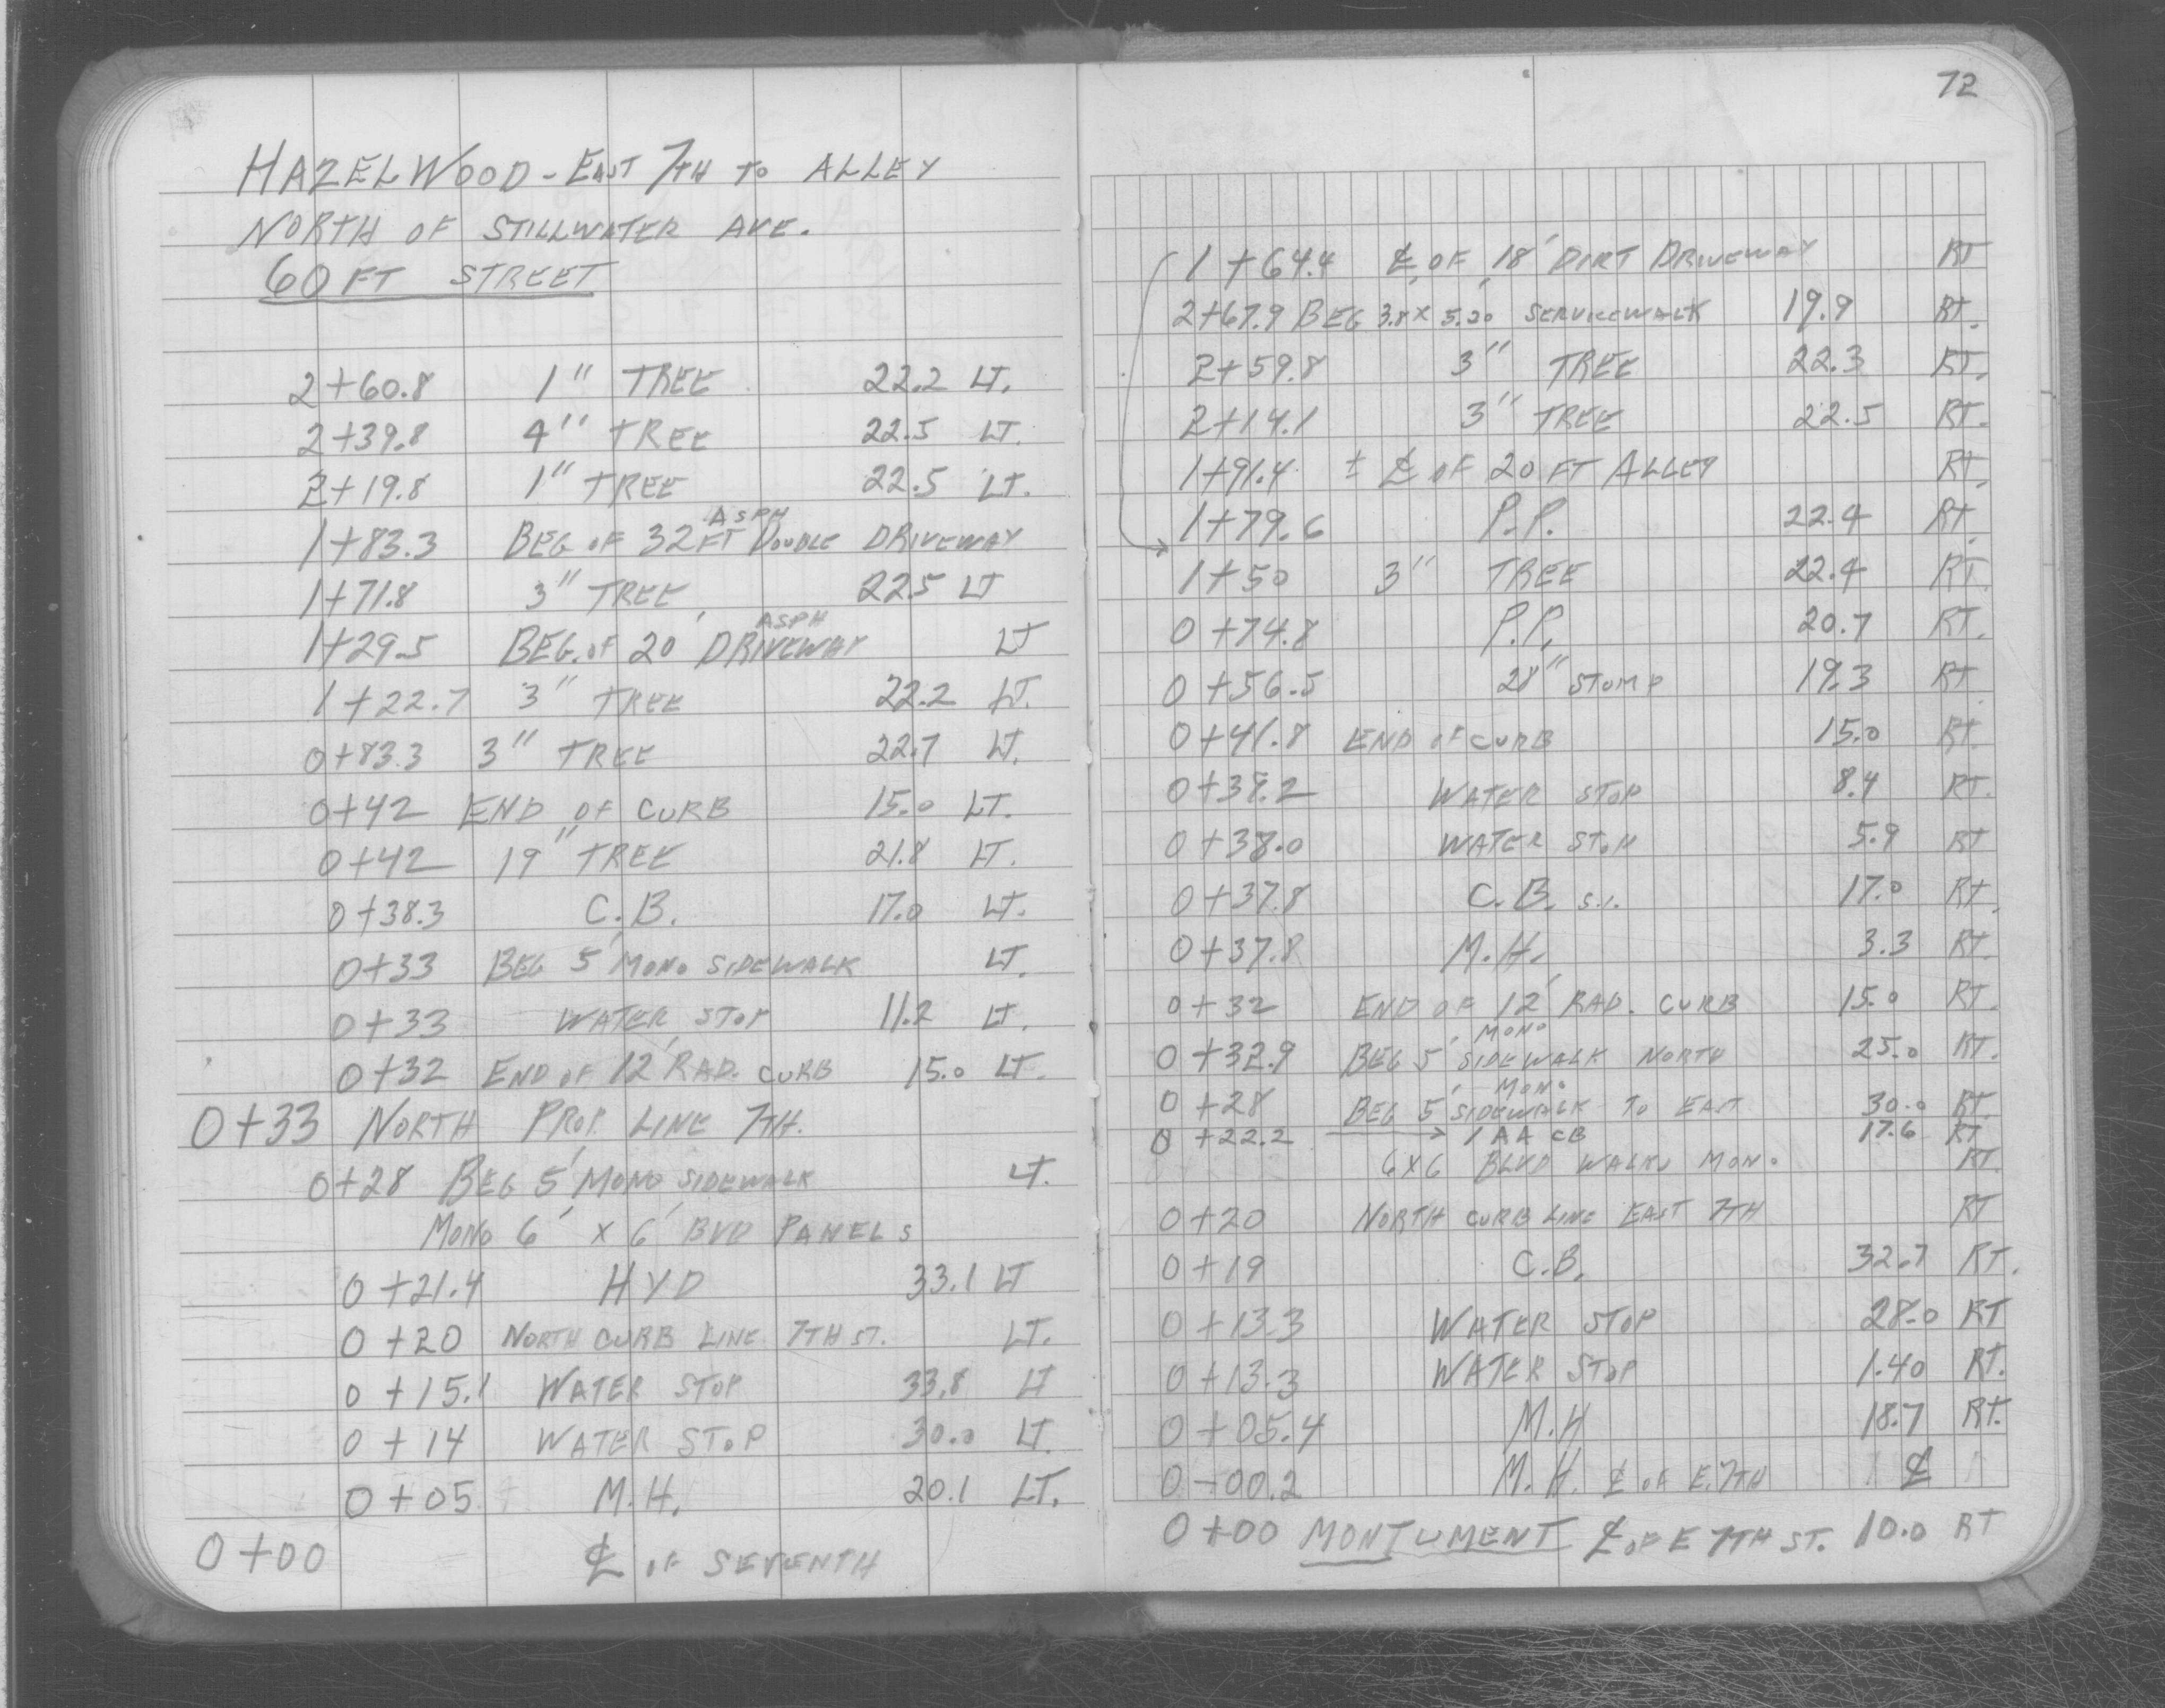 HAZELWOOD - EAST 7TH TO ALLEY
NORTH OF STILLWATER AVE.
60 FT STREET
2+60.8 1" TREE 22.2 LT.
2+39.8 4" TREE 22.5 LT.
2+19.8 1" TREE 22.5 LT.
ASPH
1+83.3 BEG OF 32 FT DOUBLE DRIVEWAY
1+71.8 3" TREE 22.5 LT
ASPH
1+29.5 BEG. OF 20' DRIVEWAY LT
1+22.7 3" TREE 22.2 LT.
0+83.3 3" TREE 22.7 LT.
0+42 END OF CURB 15.0 LT.
0+42 19" TREE 21.8 LT.
0+38.3 C.B. 17.0 LT.
0+33 BEG 5' MONO SIDEWALK LT.
0+33 WATER STOP 11.2 LT.
0+32 END OF 12' RAD. CURB 15.0 LT.
0+33 NORTH PROP. LINE 7TH.
0+28 BEG 5' MONO SIDEWALK LT.
MONO 6' X 6' BVD PANELS
0+21.4 HYD 33.1 LT
0+20 NORTH CURB LINE 7TH ST. LT.
0+15.1 WATER STOP 33.8 LT
0+14 WATER STOP 30.0 LT.
0+05 M.H. 20.1 LT.
0+00 ℄ OF SEVENTH
72
1+64.4 ℄ OF 18' DIRT DRIVEWAY RT
2+67.9 BEG 3.8' X 5.20' SERVICEWALK 19.9 RT.
2+59.8 3" TREE 22.3 RT.
2+14.1 3" TREE 22.5 RT.
1+91.4 ± ℄ OF 20 FT ALLEY RT.
1+79.6 P.P. 22.4 RT.
1+50 3" TREE 22.4 RT.
0+74.8 P.P. 20.7 RT.
0+56.5 28" STUMP 19.3 RT.
0+41.8 END OF CURB 15.0 RT.
0+38.2 WATER STOP 8.4 RT.
0+38.0 WATER STOP 5.9 RT
0+37.8 C.B. S.I. 17.0 RT.
0+37.8 M.H. 3.3 RT.
0+32 END OF 12' RAD. CURB 15.0 RT.
MONO
0+32.9 BEG 5' SIDEWALK NORTH 25.0 RT.
MONO
0+28 BEG 5' SIDEWALK TO EAST 30.0 RT.
0+22.2 → 1 AA CB 17.6 RT
6X6 BLVD WALKS MONO RT.
0+20 NORTH CURB LINE EAST 7TH RT
0+19 C.B. 32.7 RT.
0+13.3 WATER STOP 28.0 RT
0+13.3 WATER STOP 1.40 RT.
0+05.4 M.H 18.7 RT.
0-00.2 M.H. ℄ OF E. 7TH ℄
0+00 MONTUMENT ℄ OF E 7TH ST. 10.0 RT